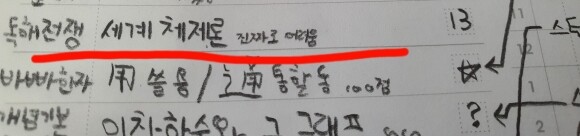 독해전쟁 세계 체제론 진짜로 어려움 13
바빠한자 用 쓸 용 / 通 통할 통 100점 ☆
개념기본 이차함수와 그 그래프 ?
11
12
1
2
스트